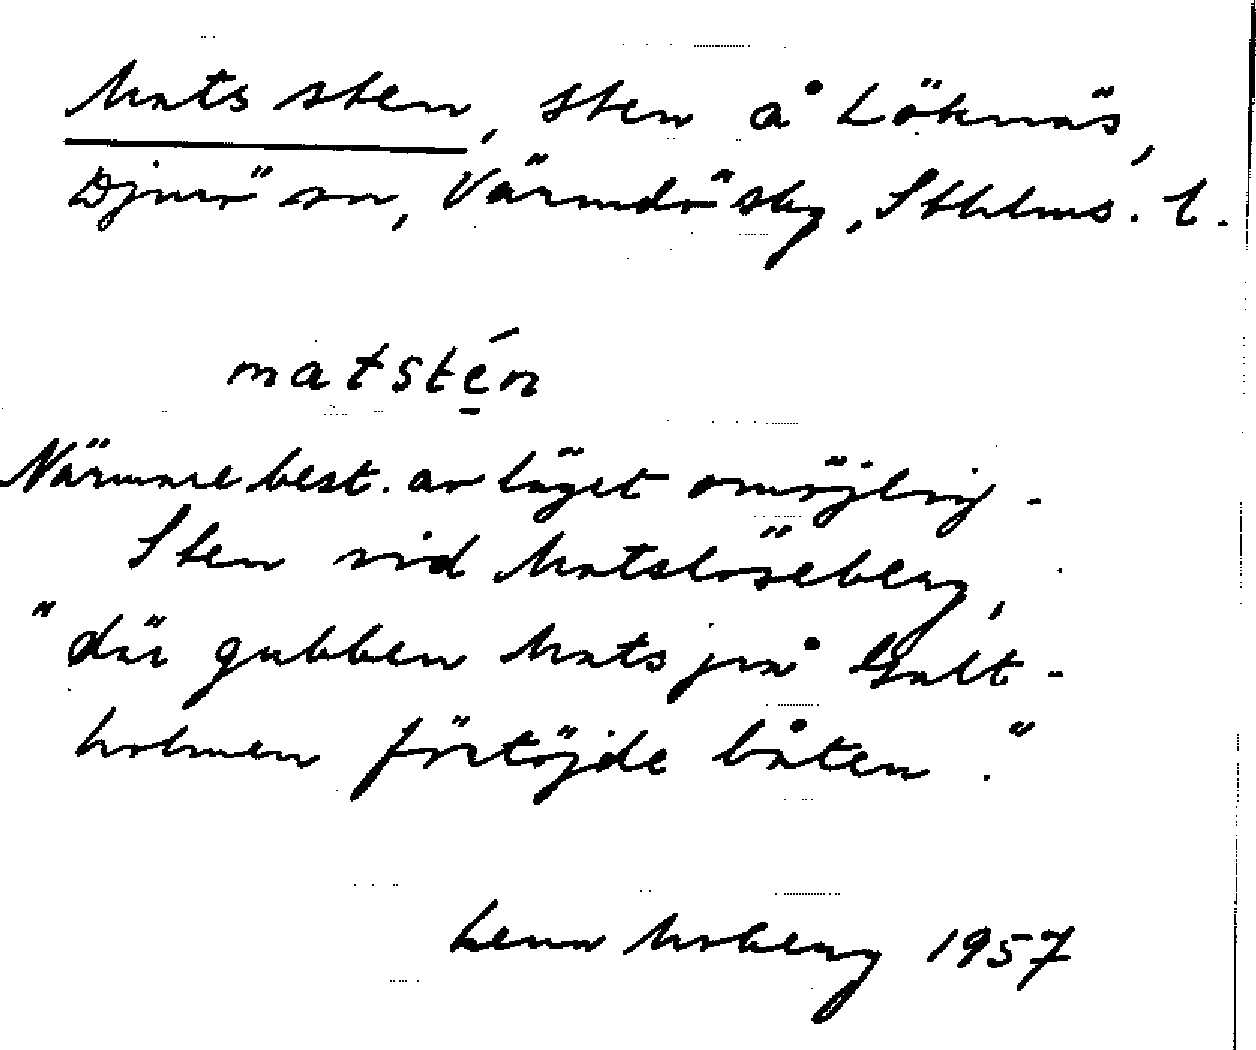 Mats sten, sten å Löknäs,
Djurö sn, Värmdö sky, Sthlms. l.
matstén
Närmare best. av läget omöjlig -
Sten vid Matslöseberg,
"där gubben Mats på Galt-
holmen förtöjde båten."
Lena Moberg 1957